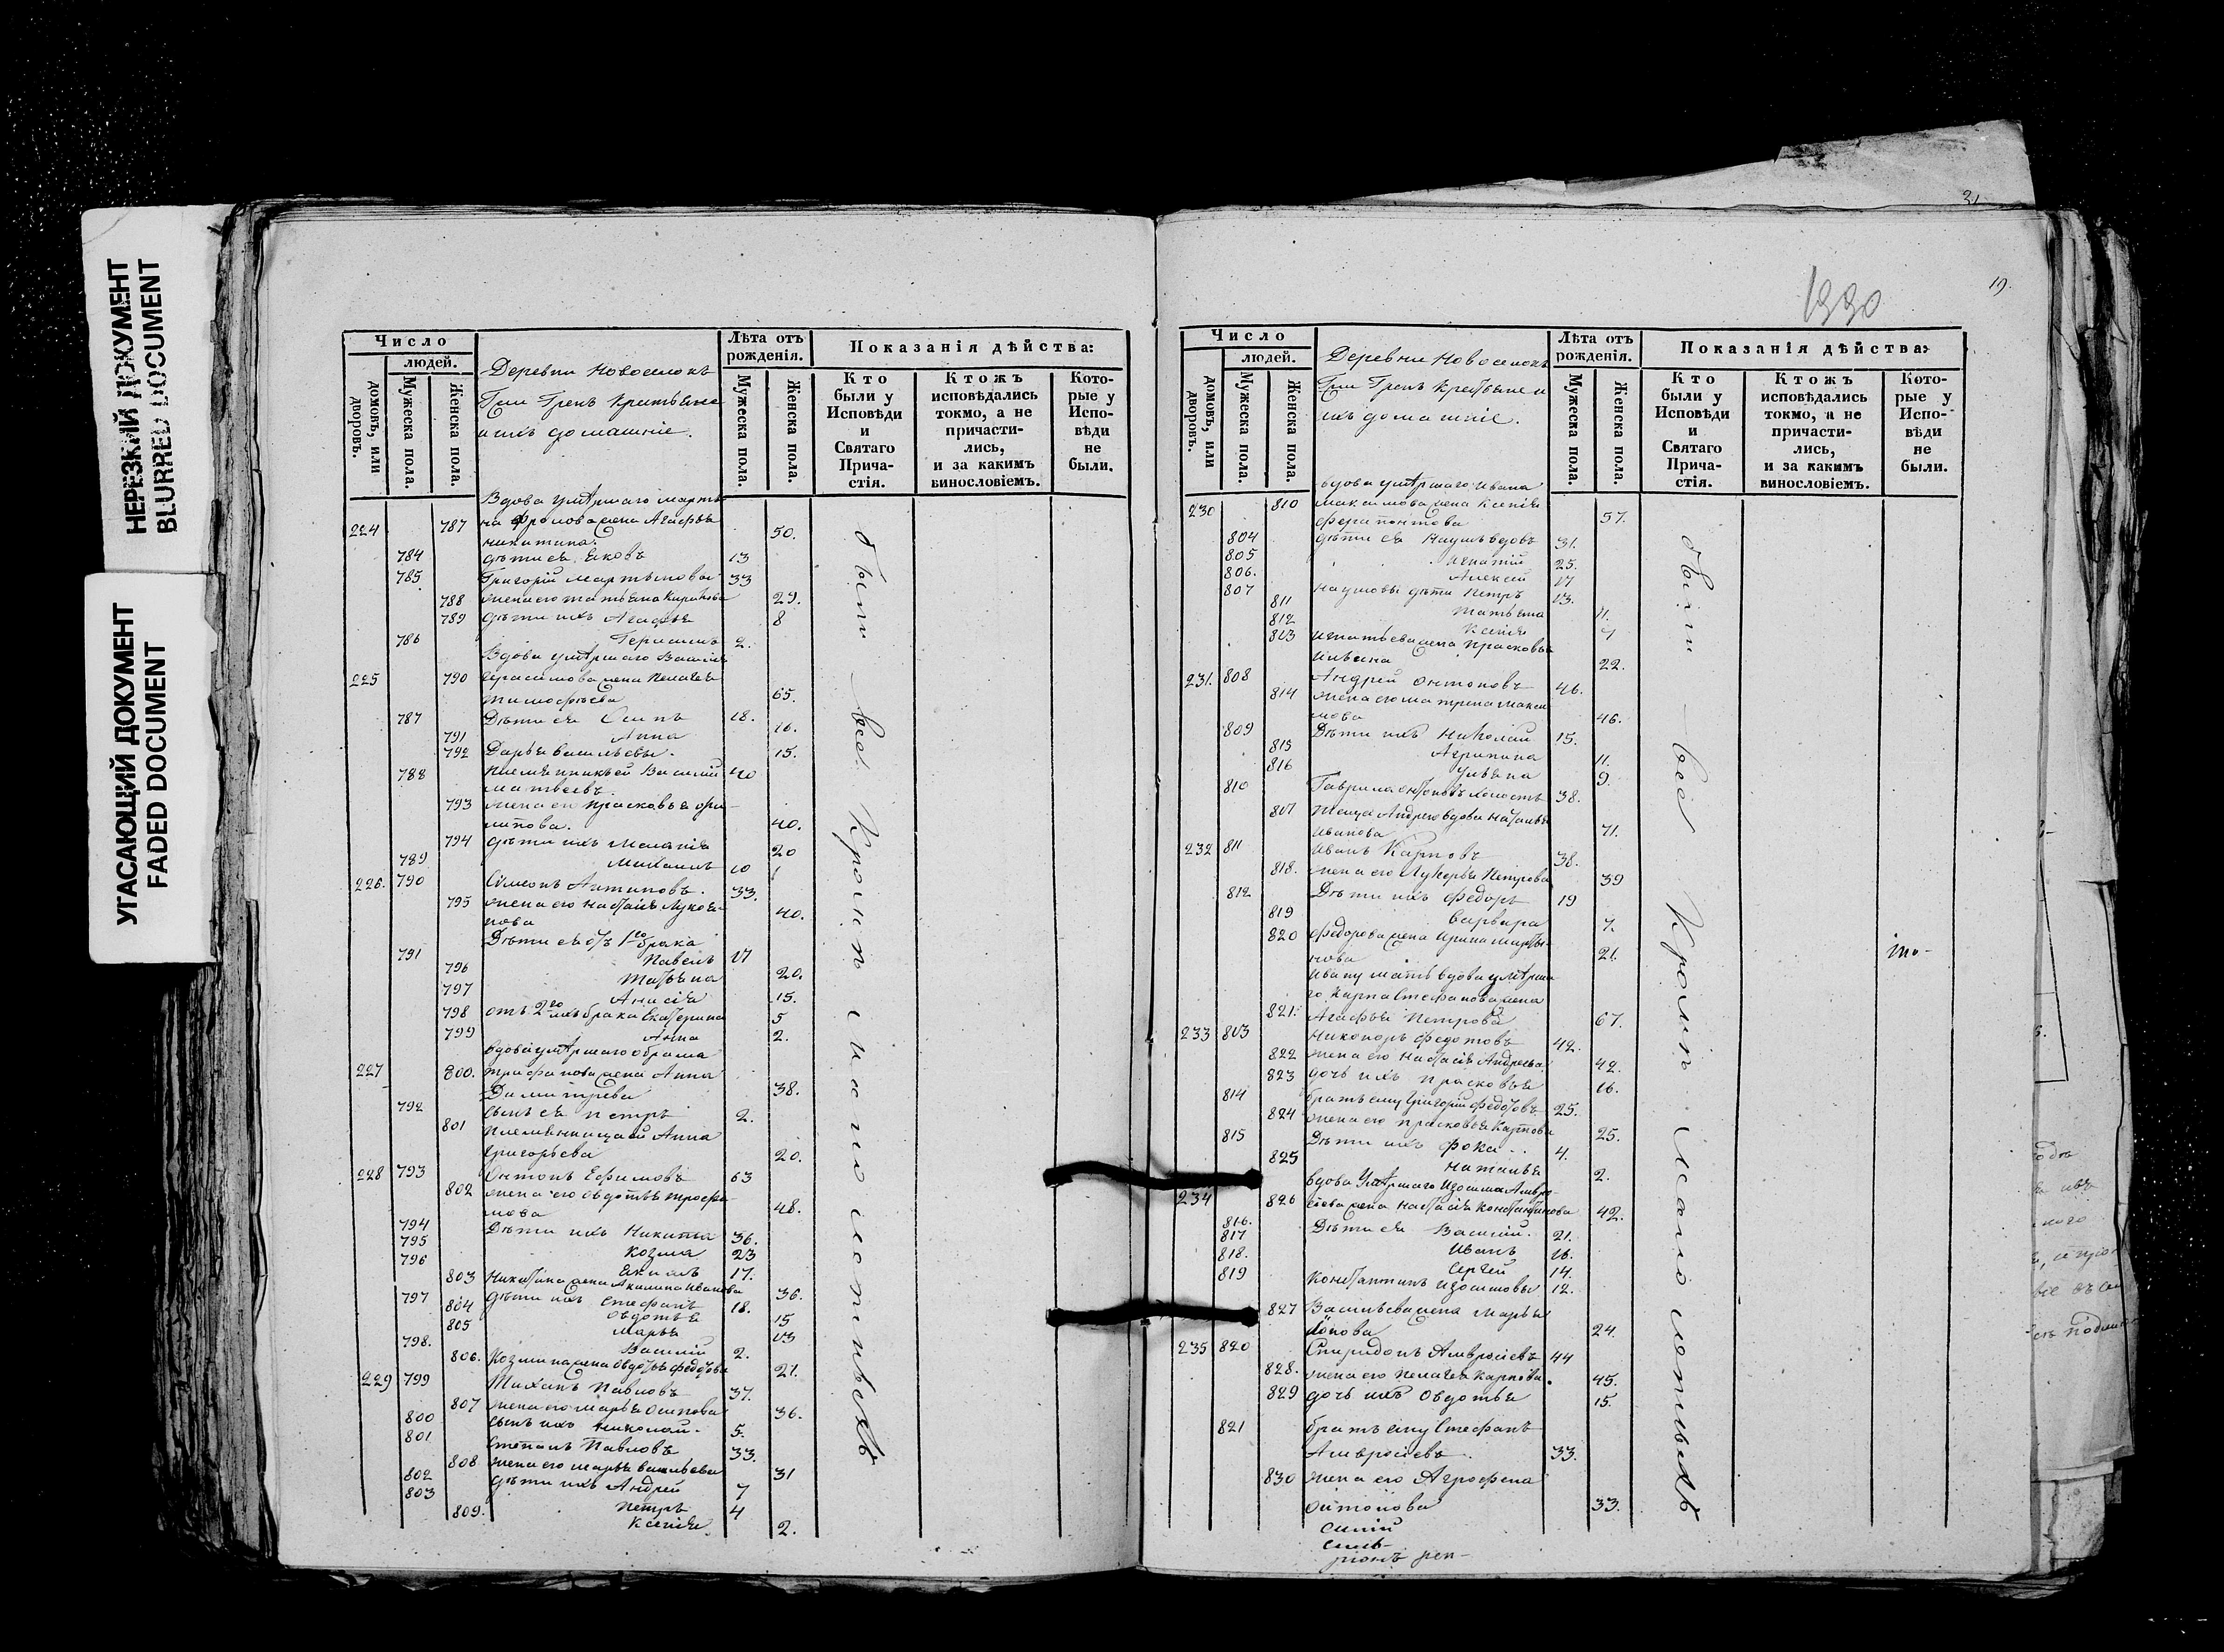 НЕРЕЗКИЙ ДОКУМЕНТ
BLURRED DOCUMENT
УГАСАЮЩИЙ ДОКУМЕНТ
FADED DOCUMENT
Число
людей.
домовъ, или дворовъ.
Мужеска пола.
Женска пола.
Деревни Новоселокъ
и ихъ домашніе.
Лѣта отъ рожденія.
Мужеска пола.
Женска пола.
Показанія дѣйства:
Кто были у Исповѣди и Святаго Прича-стія.
Ктожъ исповѣдались токмо, а не причасти-лись, и за какимъ винословіемъ.
Кото-рые у Испо-вѣди не были.
Вдова умершаго марты
224 787 на фролова жена Агафья 50.
никитина.
784 дѣти ея Яковъ 13
785 Григорій мартыновы 33
788 жена его татьяна 29.
789 дѣти ихъ Агафья 8
786 Герасимъ 2.
Вдова умершаго Васил
225 790 Герасимова жена Пелагея
тимофѣева 65.
787 Дѣти ея Осипъ 18.
791 Анна 16.
792 Дарья васильевы. 15.
788 племянникъ ей Василій 40
матвѣевъ.
793 жена его прасковья фи-
липова. 40.
794 дѣти ихъ Меланія 20
789 Михаилъ 10
226. 790 Симеонъ Антиповъ. 33.
795 жена его Настасья Лукоя-
нова 40.
Дѣти ея отъ 1го брака
791 Павелъ 17
796 Татьяна 20.
797 Анисія 15.
798 отъ 2го ихъ брака Екатерина 5
799 Анна 2.
вдова умершаго абрама
227 800. трифанова жена Анна
Димитрева 38.
792 сынъ ея петръ 2.
801 племянница ей Анна
Григорьева 20.
228 793 Антонъ Ефимовъ 63
802 жена его Овдотья трофи
мова 48.
794 Дѣти ихъ Никита 36.
795 Козма 23
796 Якимъ 17.
803 Никитина жена Акилина Иванова 36.
797 дѣти ихъ Стефанъ 18.
804 Овдотья 15
805 Марья 13
798. Василій 2.
806. Козмина жена Овдотья федотова 21.
229 799 Павловъ 37.
807 жена его марья Осипова 36.
800 сынъ ихъ николай. 5.
801 Степанъ Павловъ 33.
808 жена его марья васильева 31
802 дѣти ихъ Андрей 7
803 Петръ 4
809. Ксенія 2.
были всѣ кромѣ малолетныхъ
31
1330
19.
Число
людей.
домовъ, или дворовъ.
Мужеска пола.
Женска пола.
Деревни Новоселокъ
ихъ домашніе.
Лѣта отъ рожденія.
Мужеска пола.
Женска пола.
Показанія дѣйства:
Кто были у Исповѣди и Святаго Прича-стія.
Ктожъ исповѣдались токмо, а не причасти-лись, и за какимъ винословіемъ.
Кото-рые у Испо-вѣди не были.
вдова умершаго Ивана
230 810 максимова жена Ксенія
ферапонтова 57.
804 дѣти ея Наумъ вдовъ 31.
805 игнатій 25.
806. Алексей 17
807 наумовы дѣти Петръ 13.
811 татьяна 11.
812 Ксенія 7
813 игнатьева жена прасковья
ильина 22.
231. 808 Андрей антоновъ 46.
814 жена его матрена макси
мова 46.
809 Дѣти ихъ Николай 15.
815 Агрипина 11.
816 ульяна 9.
810 Гаврила антоновъ холостъ 38.
817 теща Андрею вдова наталья
иванова 71.
232 811 Иванъ Карповъ 38.
818. жена его Лукерья Петрова 39
812 Дѣти ихъ федоръ 19
819 варвара 7.
820 федорова жена Ирина марты-
нова 21.
Ивану мать вдова умерша
го карпа Стефанова жена
821. Агафья Петрова 67.
233 813 Никоноръ федотовъ 42.
822 жена его настасія Андреева 42.
823 дочь ихъ прасковья 16.
814 братъ ему Григорій федотовъ 25.
824 жена его прасковья Карпова 25.
815 Дѣти ихъ фока 4.
825 наталья 2.
вдова умершаго Изосима Амвро-
234 826 сіева жена настасія константинова 42.
816. Дѣти ея Василій. 21.
817 Иванъ 16.
818. Сергей 14.
819 Константинъ Изосимовы 12.
827 Васильева жена марья
24.
235 820 Спиридонъ Амвросіевъ 44
828. жена его пелагея карпова. 45.
829 дочь ихъ Овдотья 15.
821 братъ ему Стефанъ
Амвросіевъ. 33.
830 жена его Агрофена
антонова 33.
были всѣ кромѣ малолетныхъ